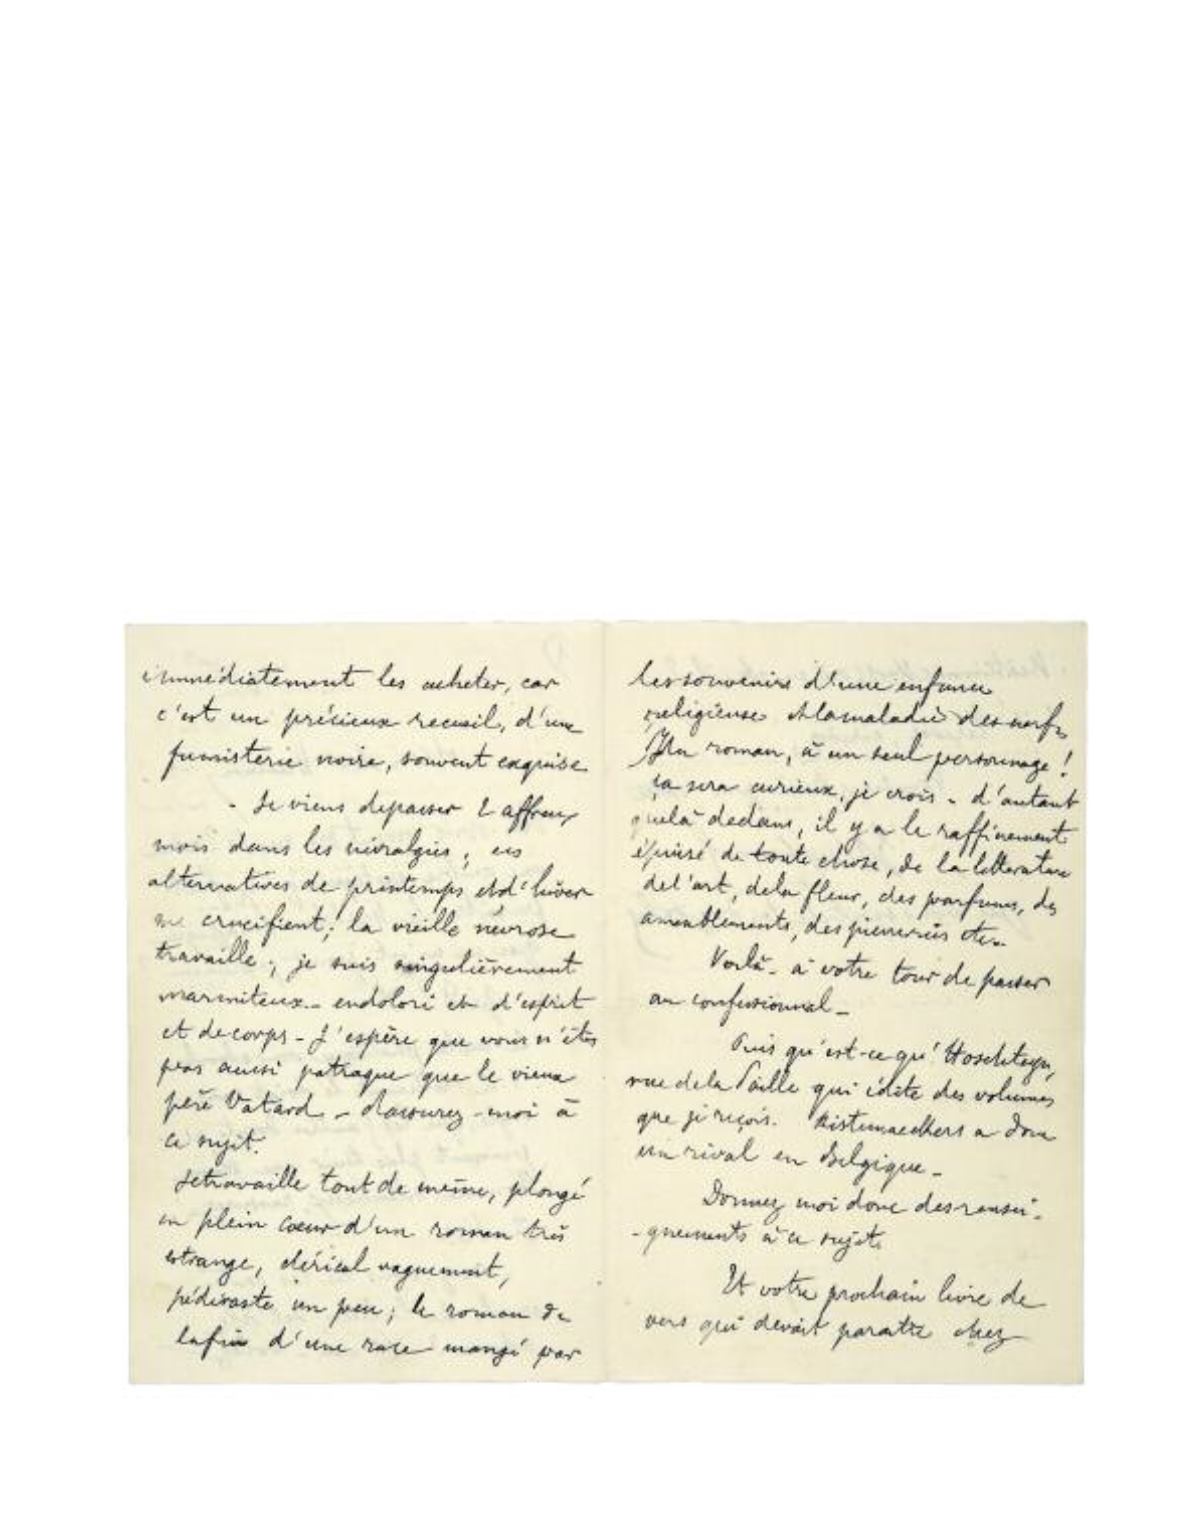 immédiatement les acheter, car
c'est un précieux recueil, d'une
fumisterie noire, souvent exquise
- Je viens depasser 2 affreux
mois dans les névralgies ; ces
alternatives de printemps et d'hiver
me crucifient ; la vieille névrose
travaille ; je suis singulièrement
marmiteux - endolori et d'esprit
et de corps - J'espère que vous n'êtes
pas aussi patraque que le vieux
père Vatard - rassurez-moi à
ce sujet.
Je travaille tout de même, plongé
en plein coeur d'un roman très
étrange, clérical vaguement,
pédéraste un peu ; le roman de
la fin d'une race mangé par
les souvenirs d'une enfance
religieuse et la maladie des nerfs
Un roman, à un seul personnage !
ça sera curieux, je crois - d'autant
que là dedans, il y a le raffinement
épuisé de toute chose, de la littérature
de l'art, de la fleur, des parfums, des
ameublements, des pierreries etc.
Voilà - à votre tour de passer
au confessionnal -
Puis qu'est-ce qu'
rue de la Paille qui édite des volumes
que je reçois. Kistemaeckers a donc
un rival en Belgique -
Donnez moi donc des rensei-
-gnements à ce sujet.
Et votre prochain livre de
vers qui devait paraître chez